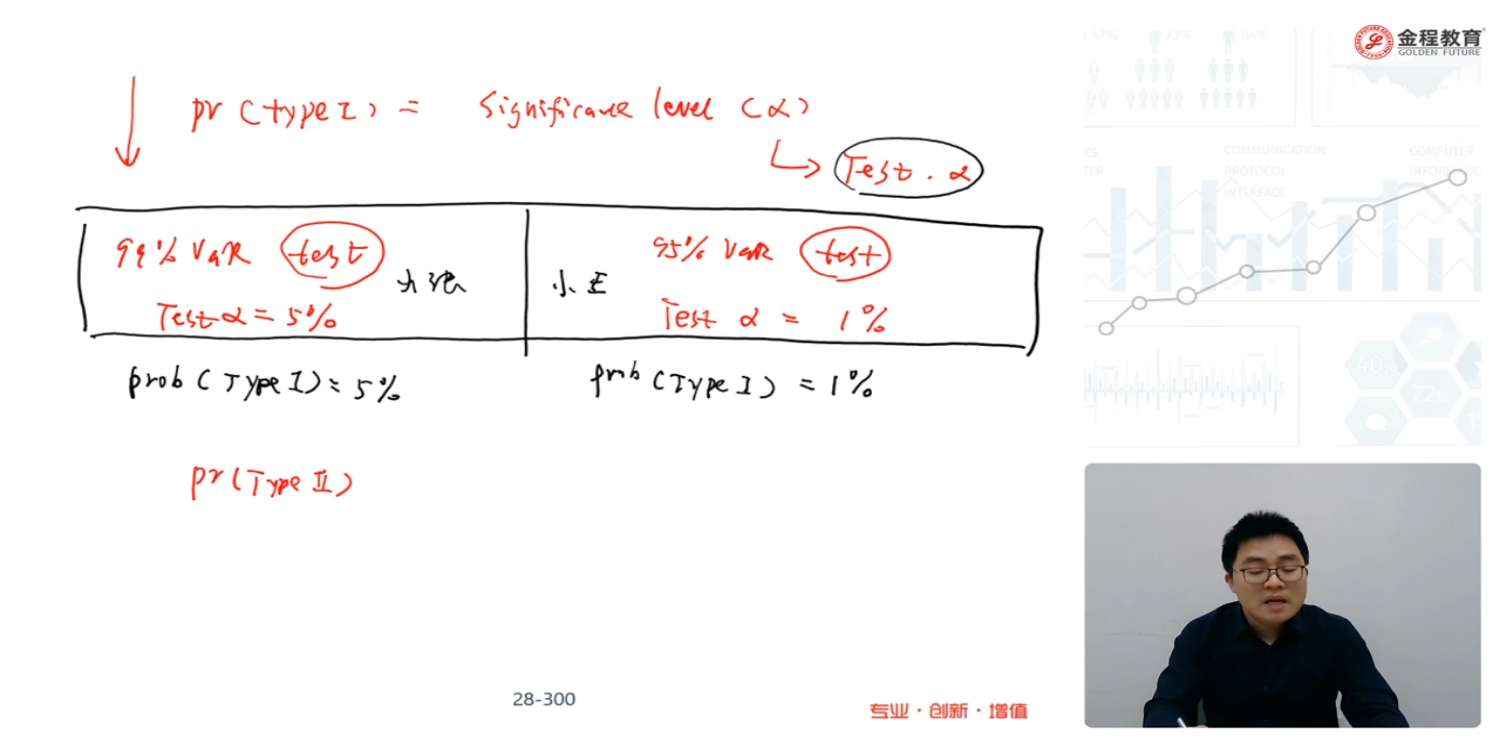 金程教育
GOLDEN FUTURE
pr (type I) = significance level (α)
Test . α
99% VaR test
95% VaR test
小王
Test α = 5%
Test α = 1%
prob (Type I) = 5%
prob (Type I) = 1%
pr (Type II)
28-300
专业·创新·增值
COMMUNICATION
PROTOCOL
INTERFACE
COMPUTER
40%
72%